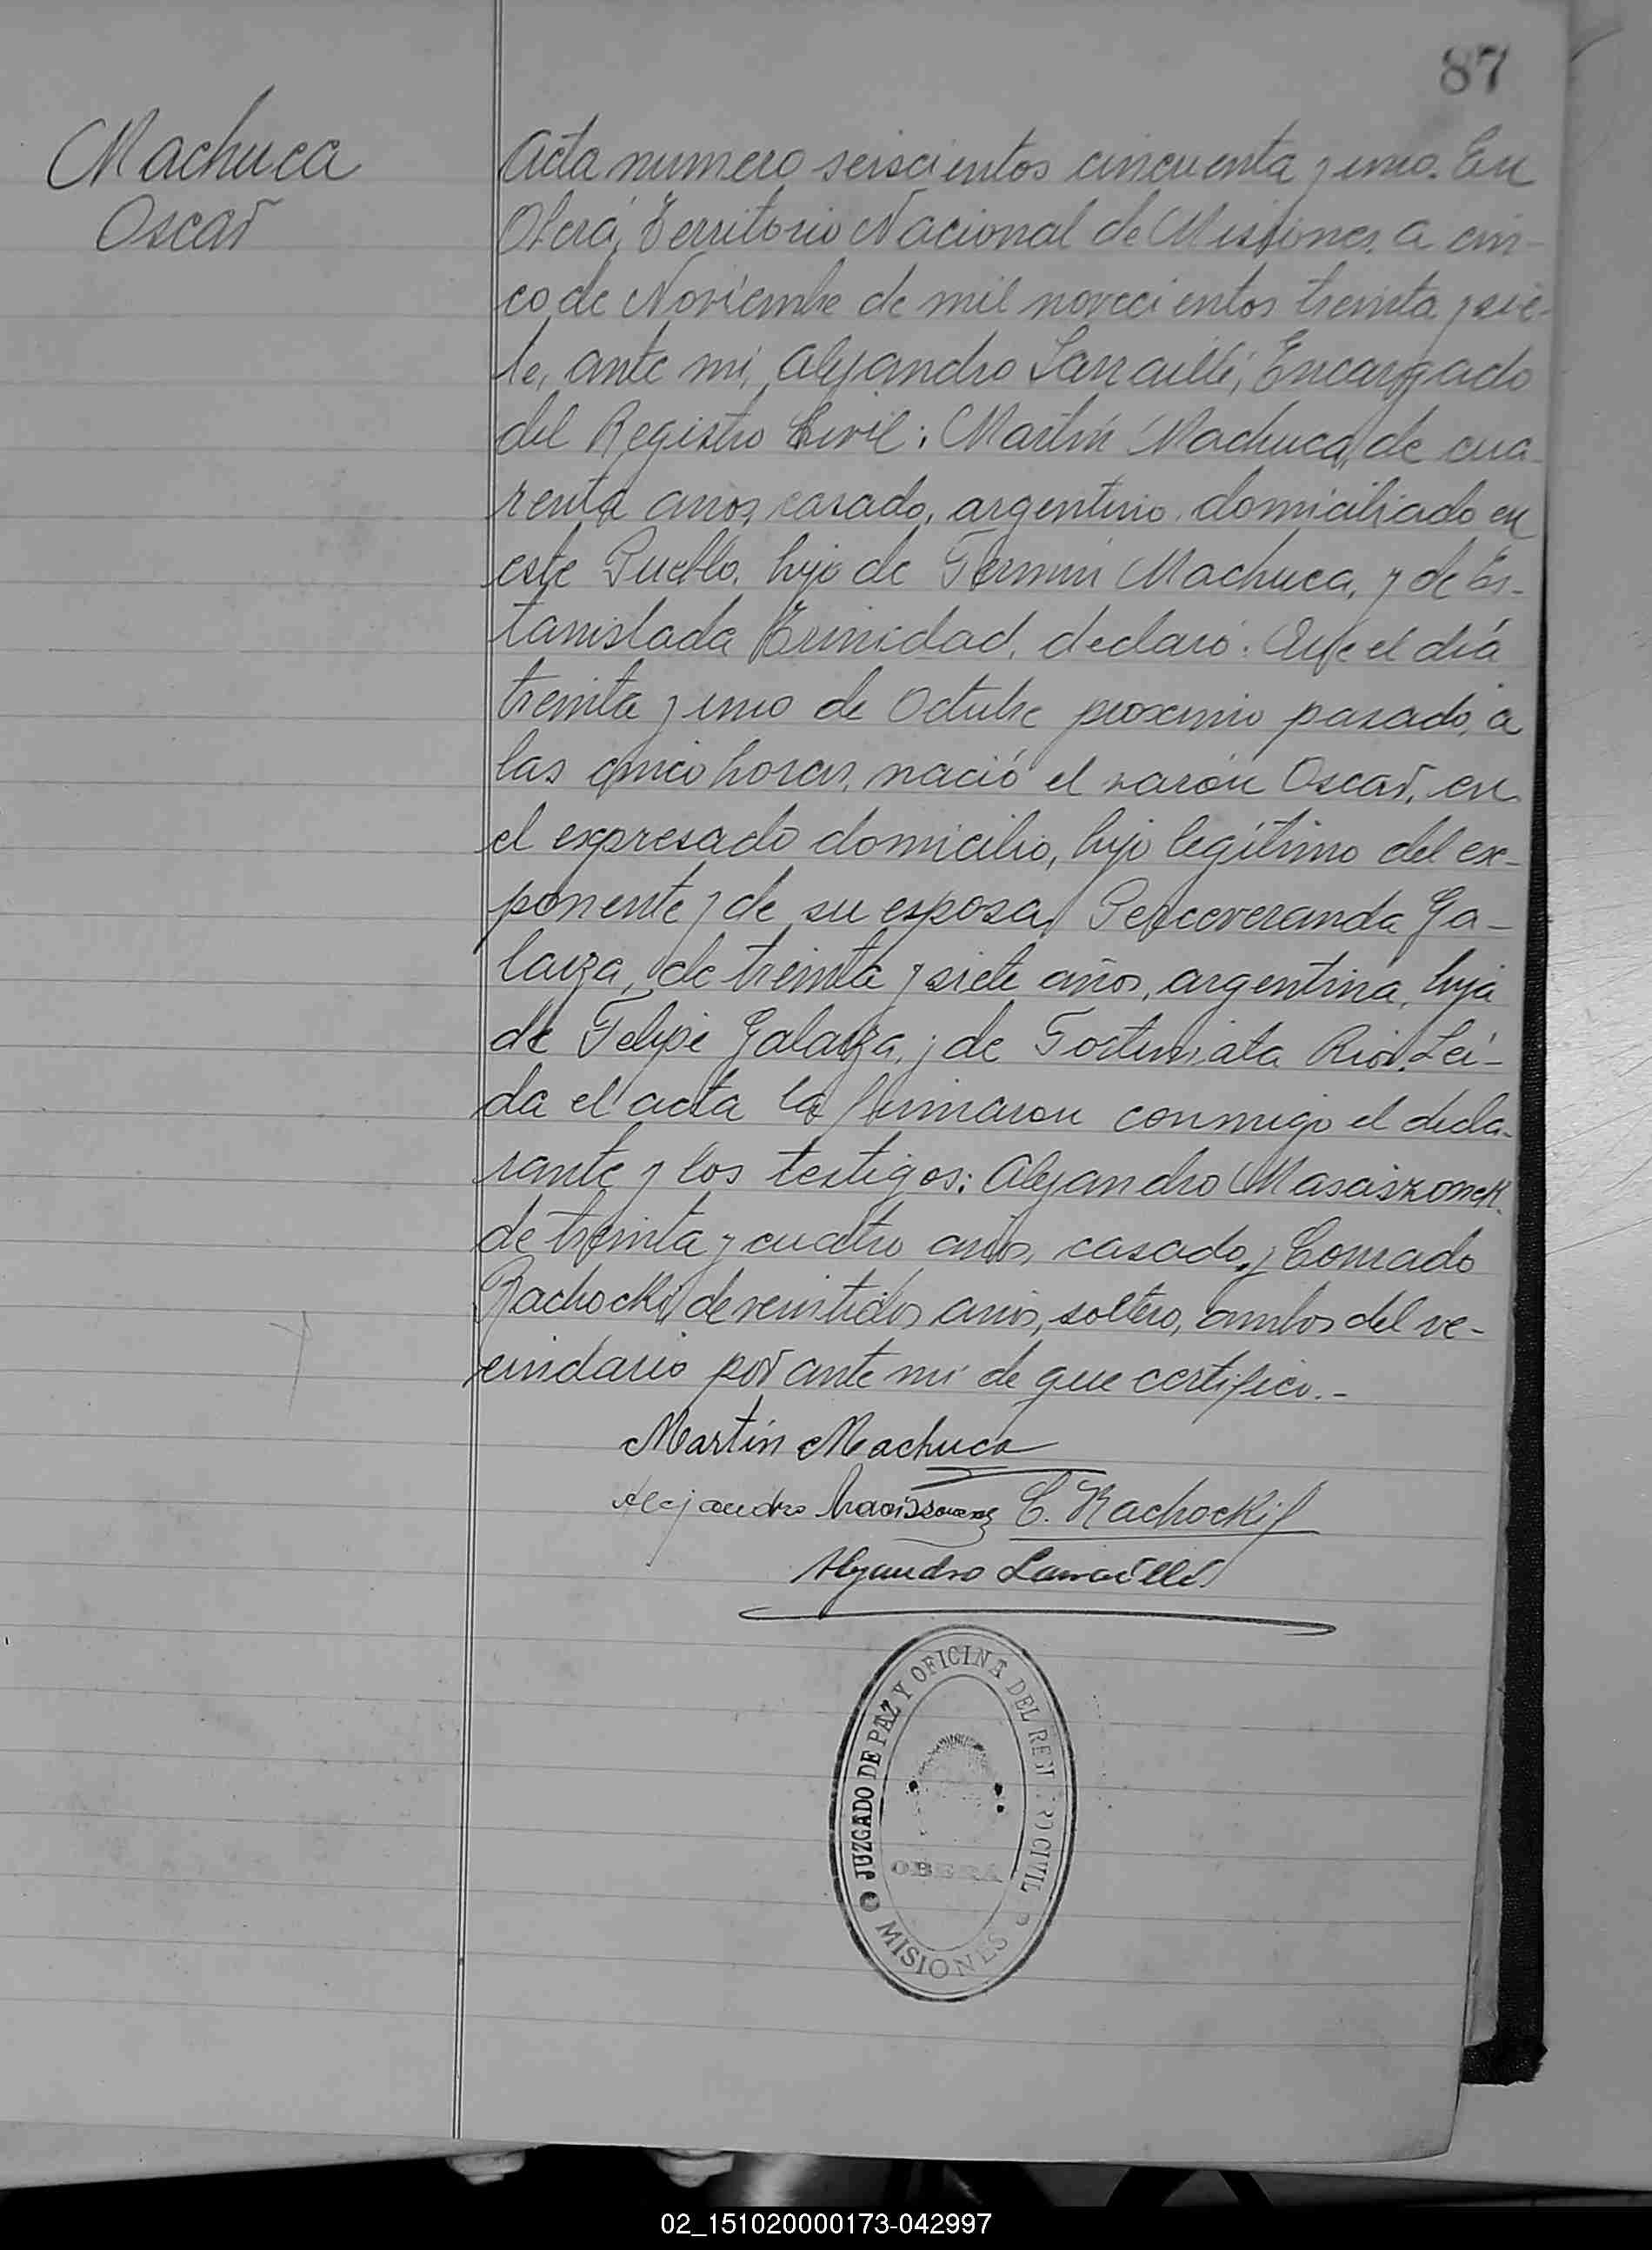 87
Machuca
Oscar
Acta numero seiscientos cincuenta y uno. En
Oberá, Territorio Nacional de Misiones, a cin-
co de Noviembre de mil novecientos treinta y sie-
te, ante mi, Alejandro Larraillé, Encargado
del Registro Civil: Martín Machuca, de cua-
renta años, casado, argentino, domiciliado en
este Pueblo, hijo de Fermin Machuca, y de Es-
tanislada Trinidad, declaró: Que el día
treinta y uno de Octubre proximo pasado, a
las cinco horas, nació el varón Oscar, en
el expresado domicilio, hijo legítimo del ex-
ponente y de su esposa, Perceveranda Ga-
larza, de treinta y siete años, argentina, hija
de Felipe Galarza, y de Fortunata Rios. Leí-
da el acta la firmaron conmigo el decla-
rante y los testigos: Alejandro
de treinta y cuatro años, casado, y Conrado
Rachocki, de veintidos años, soltero, ambos del ve-
cindario por ante mi de que certifico.-
Martín Machuca
Alejandro C. Rachocki
Alejandro Larraillé
JUZGADO DE PAZ Y OFICINA DEL REGISTRO CIVIL
OBERÁ
MISIONES
02_151020000173-042997